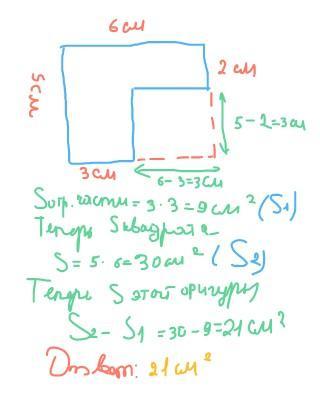 6 см
2 см
5см
5-2=3см
3 см
6-3=3см
Sотр.части=3·3=9см² (S1)
Теперь Sквадрата
S=5·6=30см² (S2)
Теперь S этой фигуры
S2-S1=30-9=21см²
Ответ: 21см²